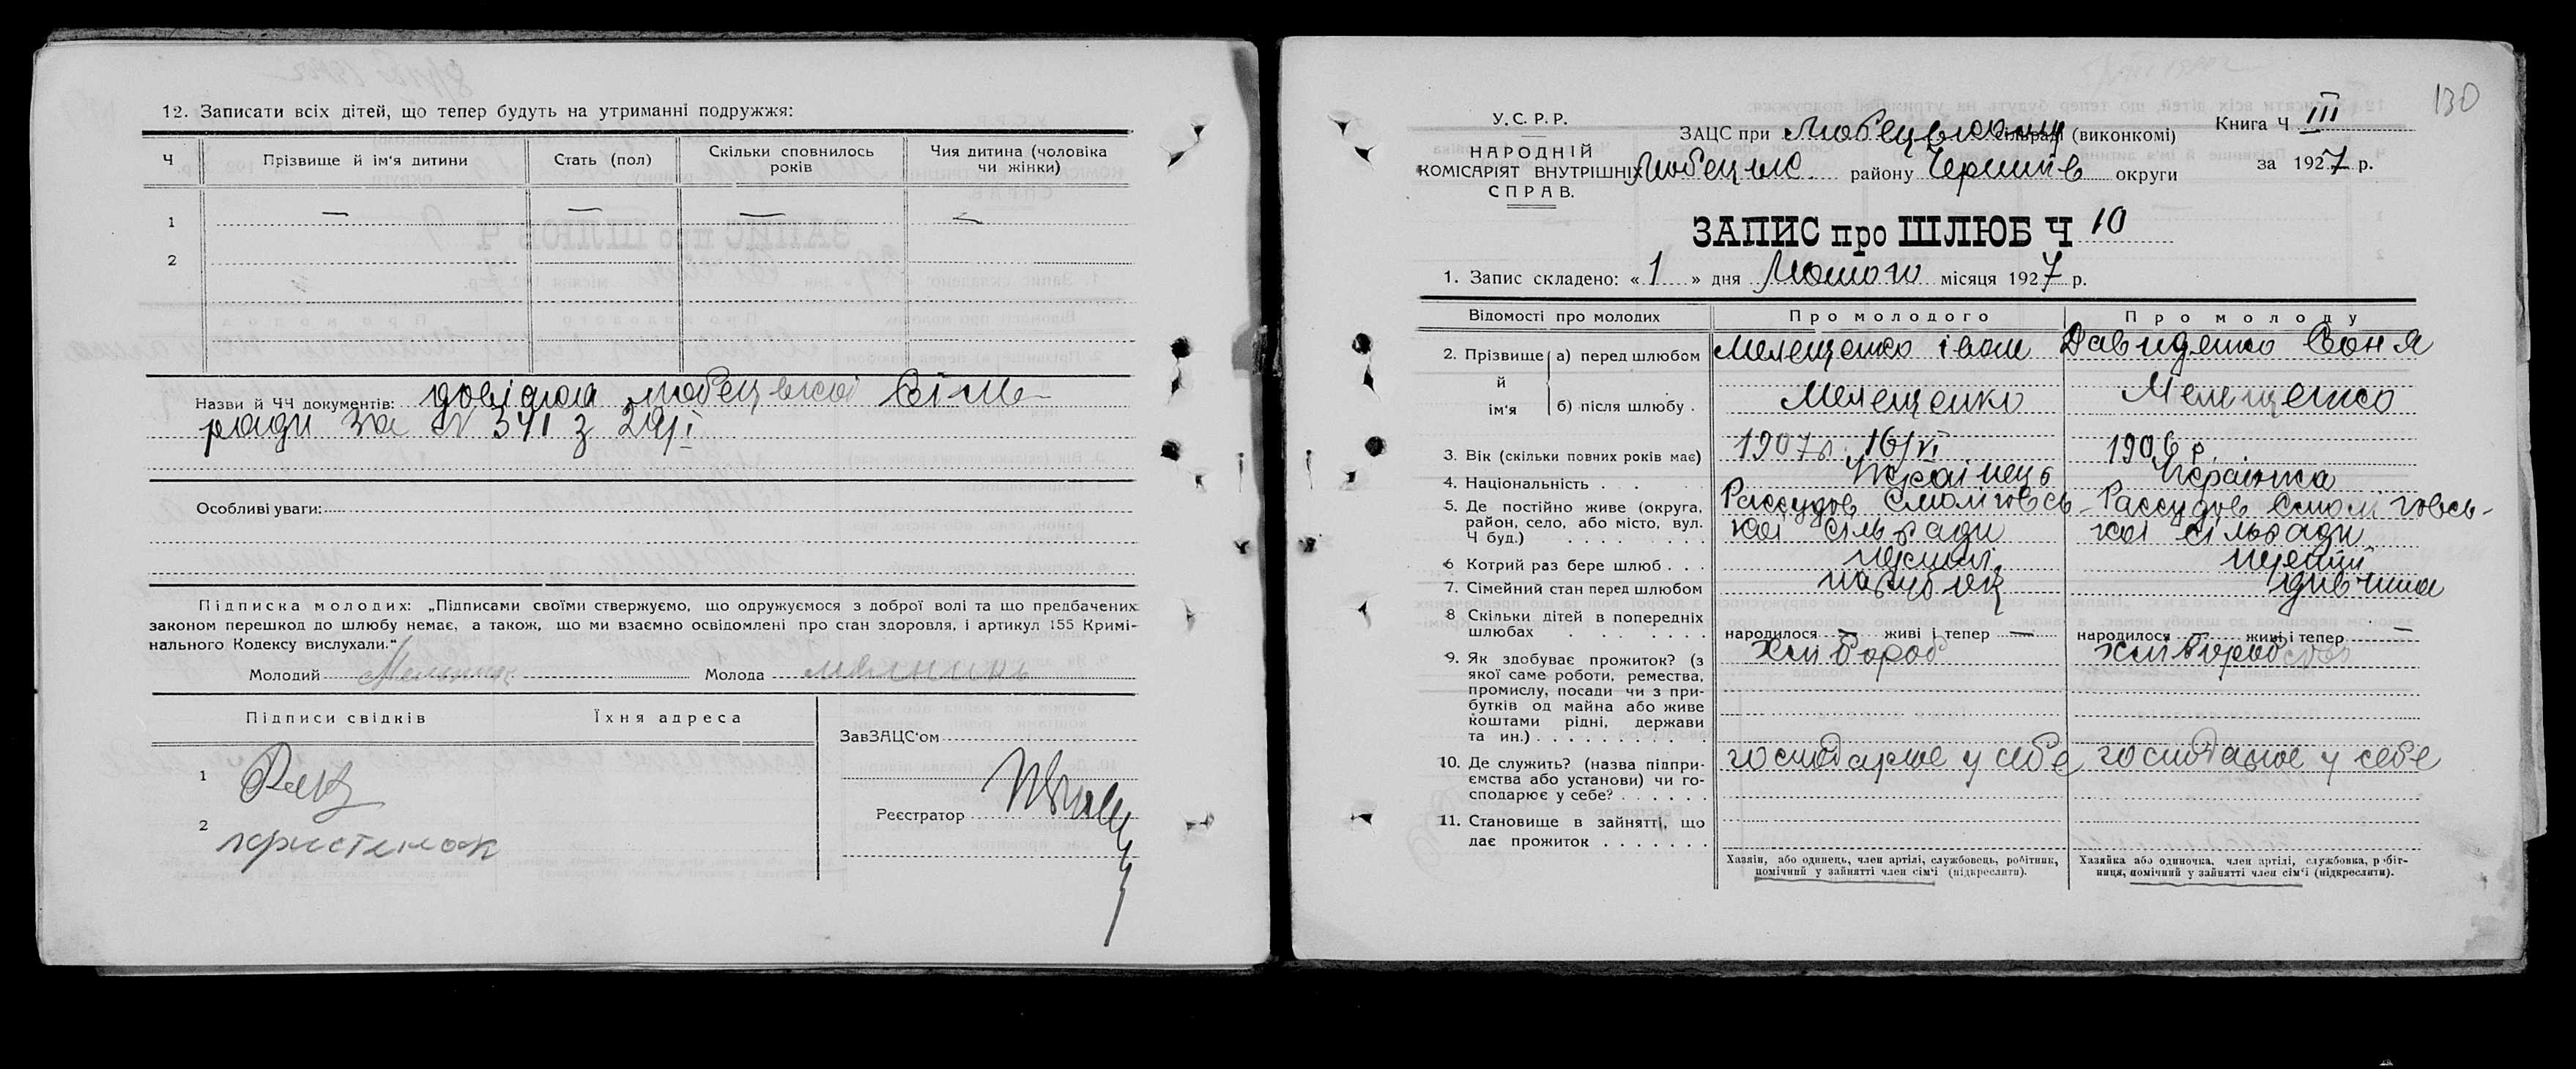 12. Записати всіх дітей, що тепер будуть на утриманні подружжя:
Ч Прізвище й ім'я дитини Стать (пол) Скільки сповнилось років Чия дитина (чоловіка чи жінки)
1 — — — —
2
Назви й ЧЧ документів: довідка любецької сіль-
ради за N 341 з 29/I
Особливі уваги:
Підписка молодих: „Підписами своїми стверджуємо, що одружуємося з доброї волі та що предбачених
законом перешкод до шлюбу немає, а також, що ми взаємно освідомлені про стан здоровля, і артикул 155 Кримі-
нального Кодексу вислухали."
Молодий Молода
Підписи свідків Їхня адреса
ЗавЗАЦС'ом
1
Реєстратор
2
130
У.С.Р.Р.
НАРОДНІЙ
КОМІСАРІЯТ ВНУТРІШНІХ
СПРАВ.
ЗАЦС при Любецькому сільраді (виконкомі)
Любецьк. району Черниів округи
Книга Ч III
за 1927 р.
ЗАПИС про ШЛЮБ Ч 10
1. Запис складено: «1» дня Лютого місяця 1927 р.
Відомості про молодих Про молодого Про молоду
2. Прізвище й ім'я а) перед шлюбом Мелещенко іван Давиденко Соня
б) після шлюбу. Мелещенко Мелещенко
3. Вік (скільки повних років має) 1907 р. 16/VI 1906 р.
4. Національність . . Українець Українка
5. Де постійно живе (округа, район, село, або місто, вул. Ч буд.) Рассудов Смолиговсь-кої сільради Рассудов Смолиговсь-кої сільради
6 Котрий раз бере шлюб . . . перший перший
7. Сімейний стан перед шлюбом парубок дівчина
8 Скільки дітей в попередніх шлюбах народилося — живі і тепер — народилося — живі і тепер —
9. Як здобуває прожиток? (з якої саме роботи, ремества, промислу, посади чи з при-бутків од майна або живе коштами рідні, держави та ин.) хлібороб хліборобство
10. Де служить? (назва підпри-ємства або установи) чи го-сподарює у себе? господарює у себе господарює у себе
11. Становище в зайнятті, що дає прожиток
Хазяїн, або одинець, член артілі, службовець, робітник, помічний у зайнятті член сім'ї (підкреслити).
Хазяйка або одиночка, член артілі, службовка, робіт-ниця, помічний у зайнятті член сім'ї (підкреслити).